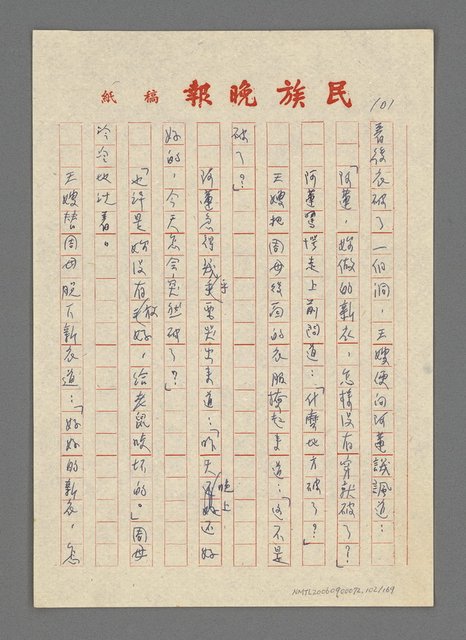 民族晚報 稿紙
101
背後衣破了一個洞，王嫂便向阿蓮譏諷道：
「阿蓮，妳做的新衣，怎樣沒有穿就破了？」
阿蓮驚愕走上前問道：「什麼地方破了？」
王嫂把周母後面的衣服掀起來道：「這不是
破了？」
阿蓮急得幾乎要哭出來道：「昨天晚上還好
好的，今天怎會突然破了？」
「也許是妳沒有放好，給老鼠咬坏的。」周母
冷冷地說着。
王嫂替周母脫下新衣道：「好好的新衣，怎
NMTL20060900072.102/169